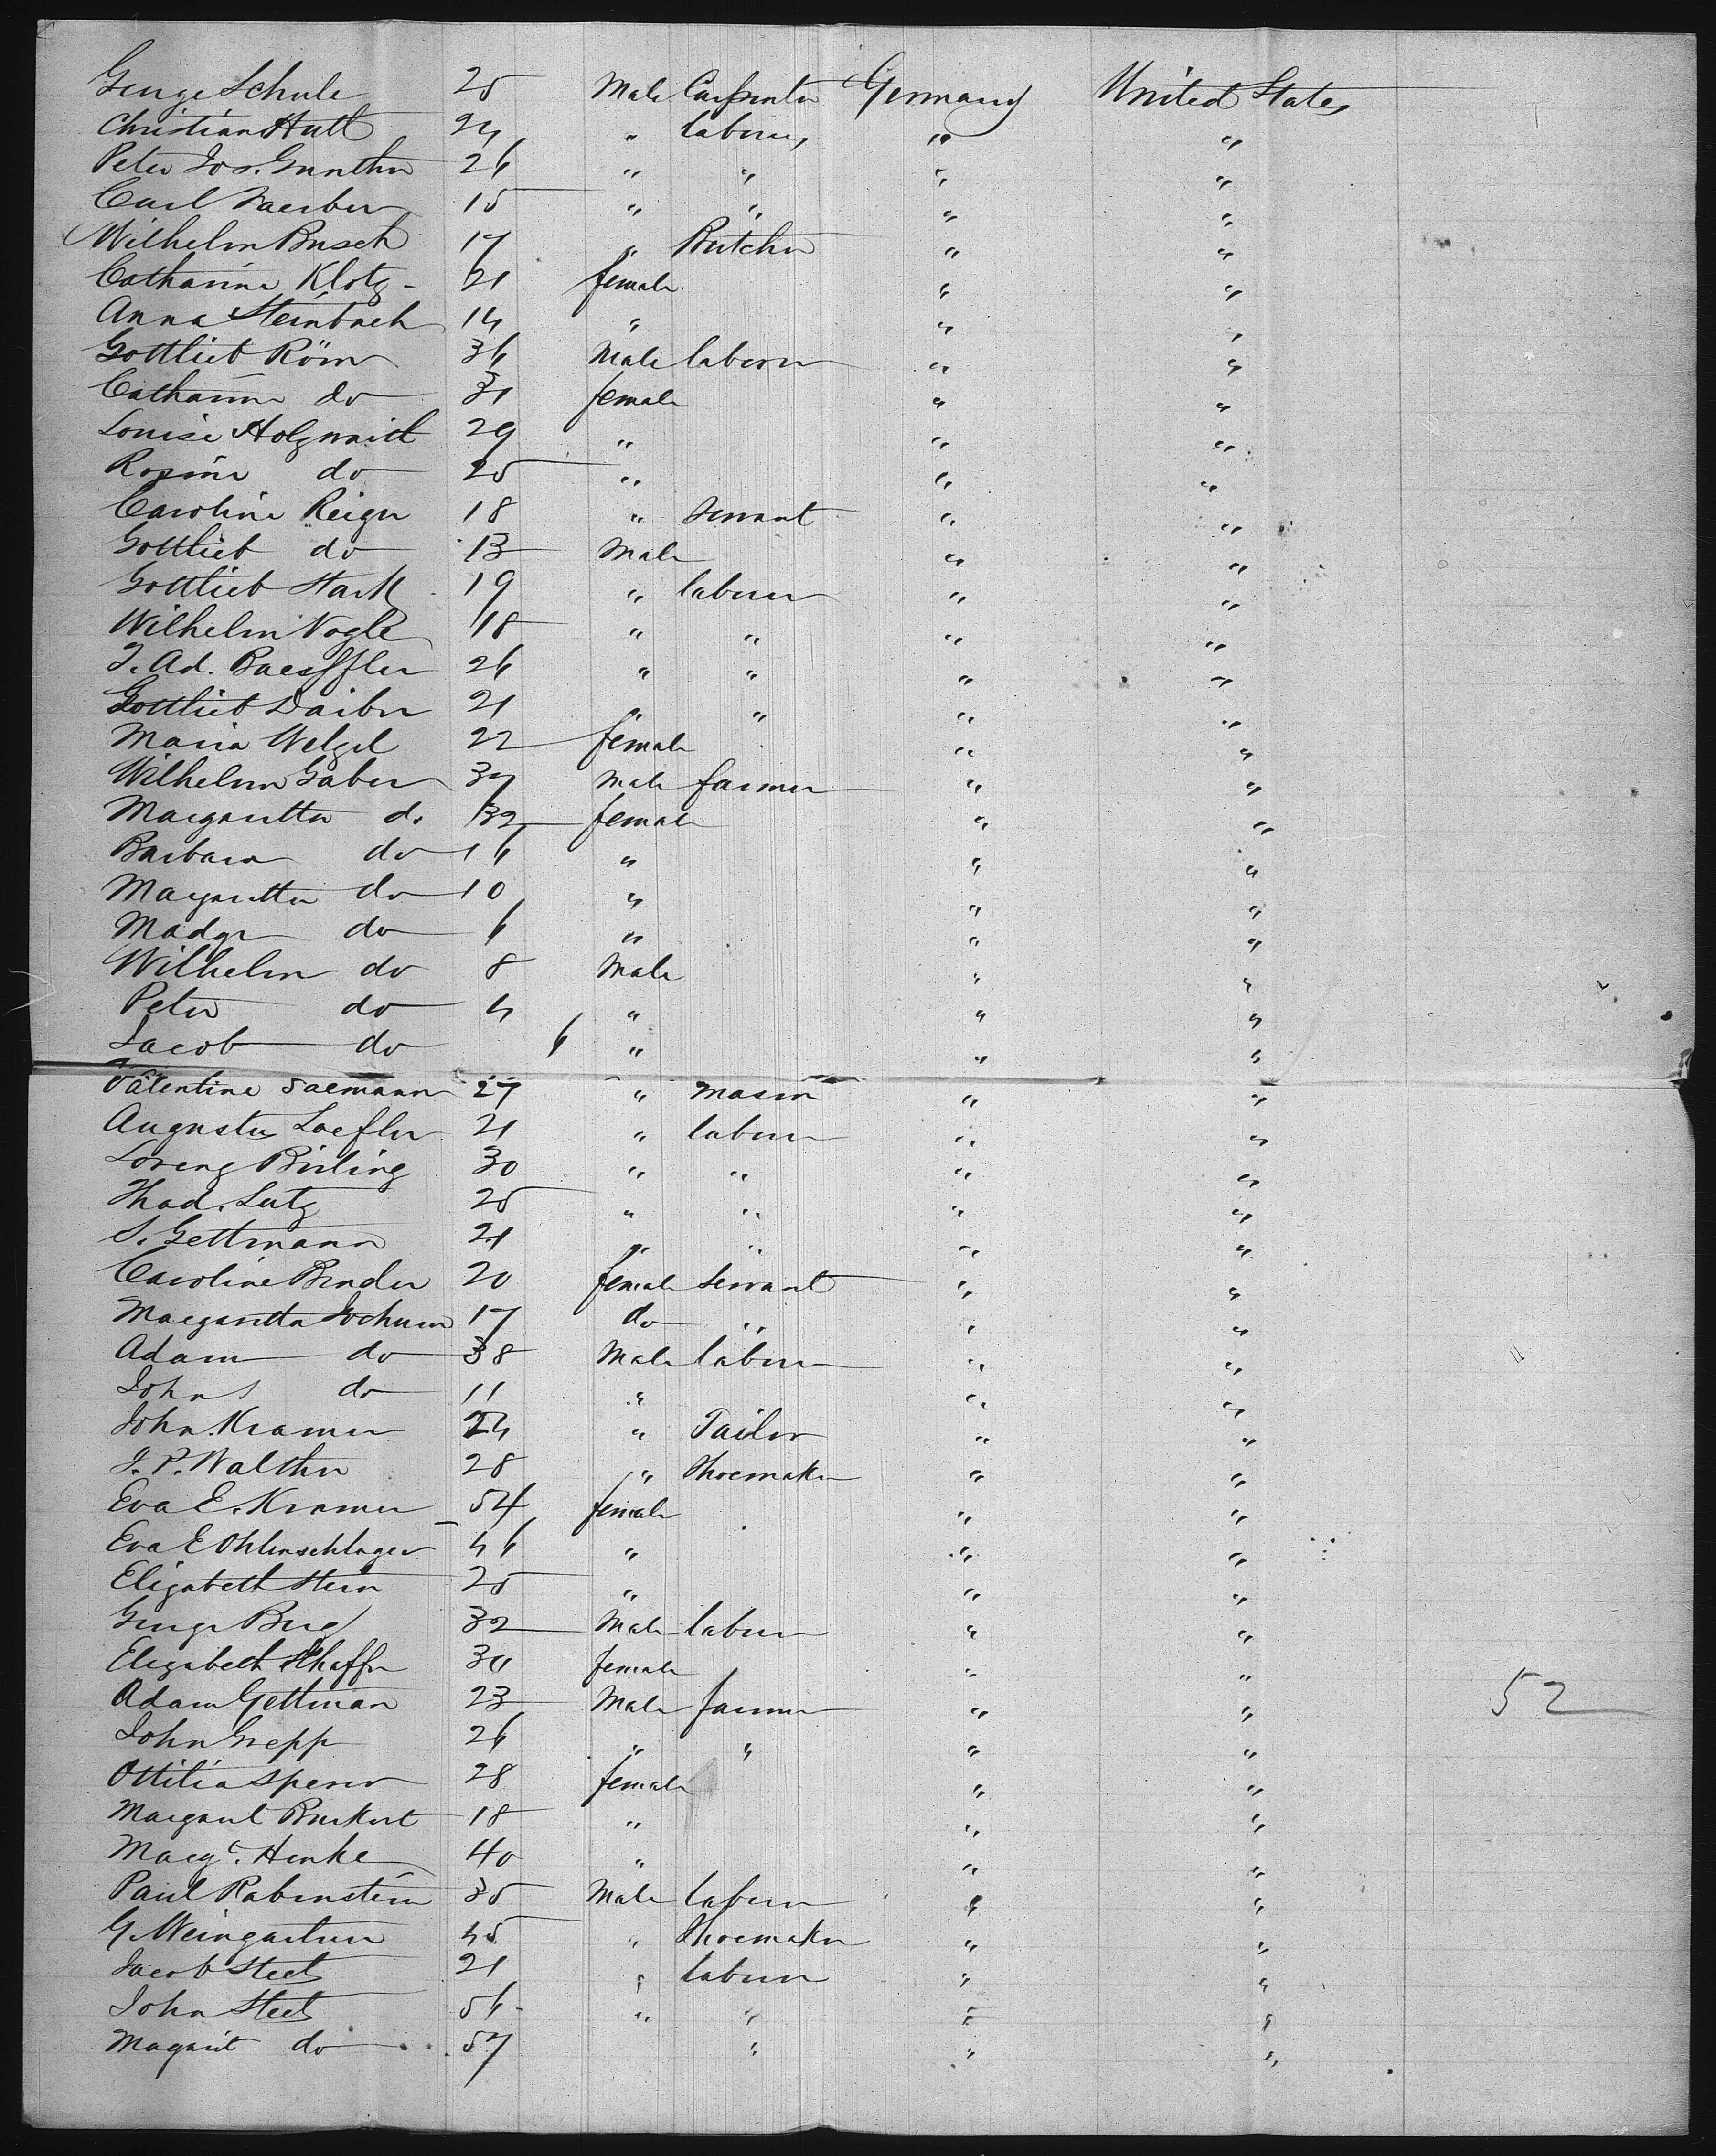 George Schule 25 Male Carpenter Germany United States
Christian Hutt 24 " laborer " "
Peter Jos. Gunther 26 " " " "
Carl Faerber 15 " " " "
Wilhelm Busch 17 " Butcher " "
Catharine Klotz 21 female " "
Anna Steinbach 14 " " "
Gottlieb Röm 36 Male laborer " "
Catharine do 31 female " "
Louise Holzwait 29 " " "
Rosine do 25 " " "
Caroline Reiger 18 " Servant " "
Gottlieb do 13 Male " "
Gottlieb Stark 19 " laborer " "
Wilhelm Vogle 18 " " " "
J. Ad. Baessffler 26 " " " "
Gottlieb Daiber 21 " " " "
Maria Welzel 22 female " "
Wilhelm Gaber 37 Male farmer " "
Margaretta do 32 female " "
Barbara do 16 " " "
Margaretta do 10 " " "
Madge do 6 " " "
Wilhelm do 8 Male " "
Peter do 4 " " "
Jacob do 6 " " "
Valentine Saemann 27 " Mason " "
Augustus Loefler 21 " laborer " "
Lorenz Birling 30 " " " "
Thad. Lutz 25 " " " "
S. Gettmann 21 " " " "
Caroline Bender 20 female Servant " "
Margaretta Jochum 17 do " " "
Adam do 38 Male laborer " "
John do 11 " " "
John Kramer 24 " Tailor " "
J. P. Walther 28 " Shoemaker " "
Eva E. Kramer 54 female " "
Eva E Ohlenschlager 46 " " "
Elizabeth Stein 25 " " "
George 32 Male laborer " "
Elizabeth Schaffer 30 female " "
Adam Gettman 23 Male farmer " " 52
John Grepp 26 " " " "
Ottilia Sperer 28 female " "
Margaret Burkert 18 " " "
Margt. Henke 40 " " "
Paul Rabenstein 35 Male laborer " "
G. Weingartner 45 " Shoemaker " "
Jacob Steet 21 " laborer " "
John Steet 56 " " " "
Magarit do 57 " " "